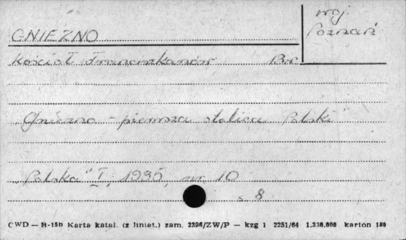 GNIEZNO
woj
Poznań
Kościół Franciszkanów
"Gniezno - pierwsza stolica Polski"
"Polska" I, 1935, nr. 10
s. 8
CWD — B-15b Karta katal. (z liniat.) zam. 2296/ZW/P — kzg 1 2251/64 1.336.000 karton 180